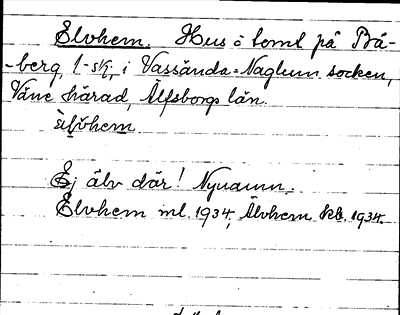 Elvhem. Hus o toml på Brå-
-berg, 1-sk, i Vassända-Naglum socken,
Väne härad, Älfsborgs län.
älvhem
Ej älv där! Nynamn.
Elvhem ml. 1934, Älvhem kb. 1934.